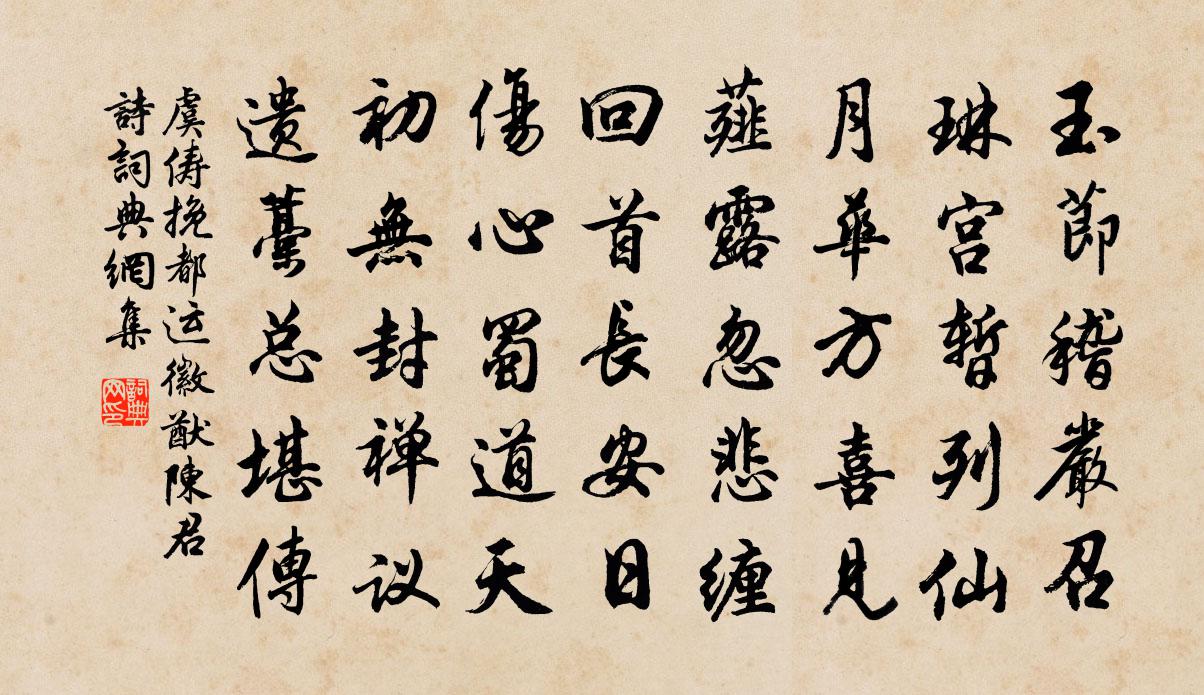 玉節稽嚴召
琳宫暫列仙
月華方喜見
薤露忽悲缠
回首長安日
傷心蜀道天
初無封禅议
遗藁总堪傳
虞儔挽都运徽猷陳君
詩詞典網集
詞典网印